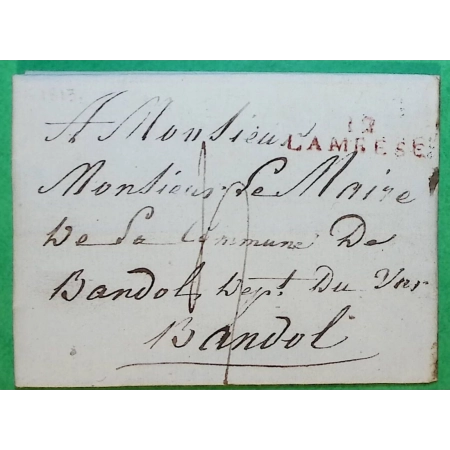 A Monsieur
19
LAMBESC
Monsieur Le Maire
De La Commune De
Bandol, Dept. Du Var
Bandol